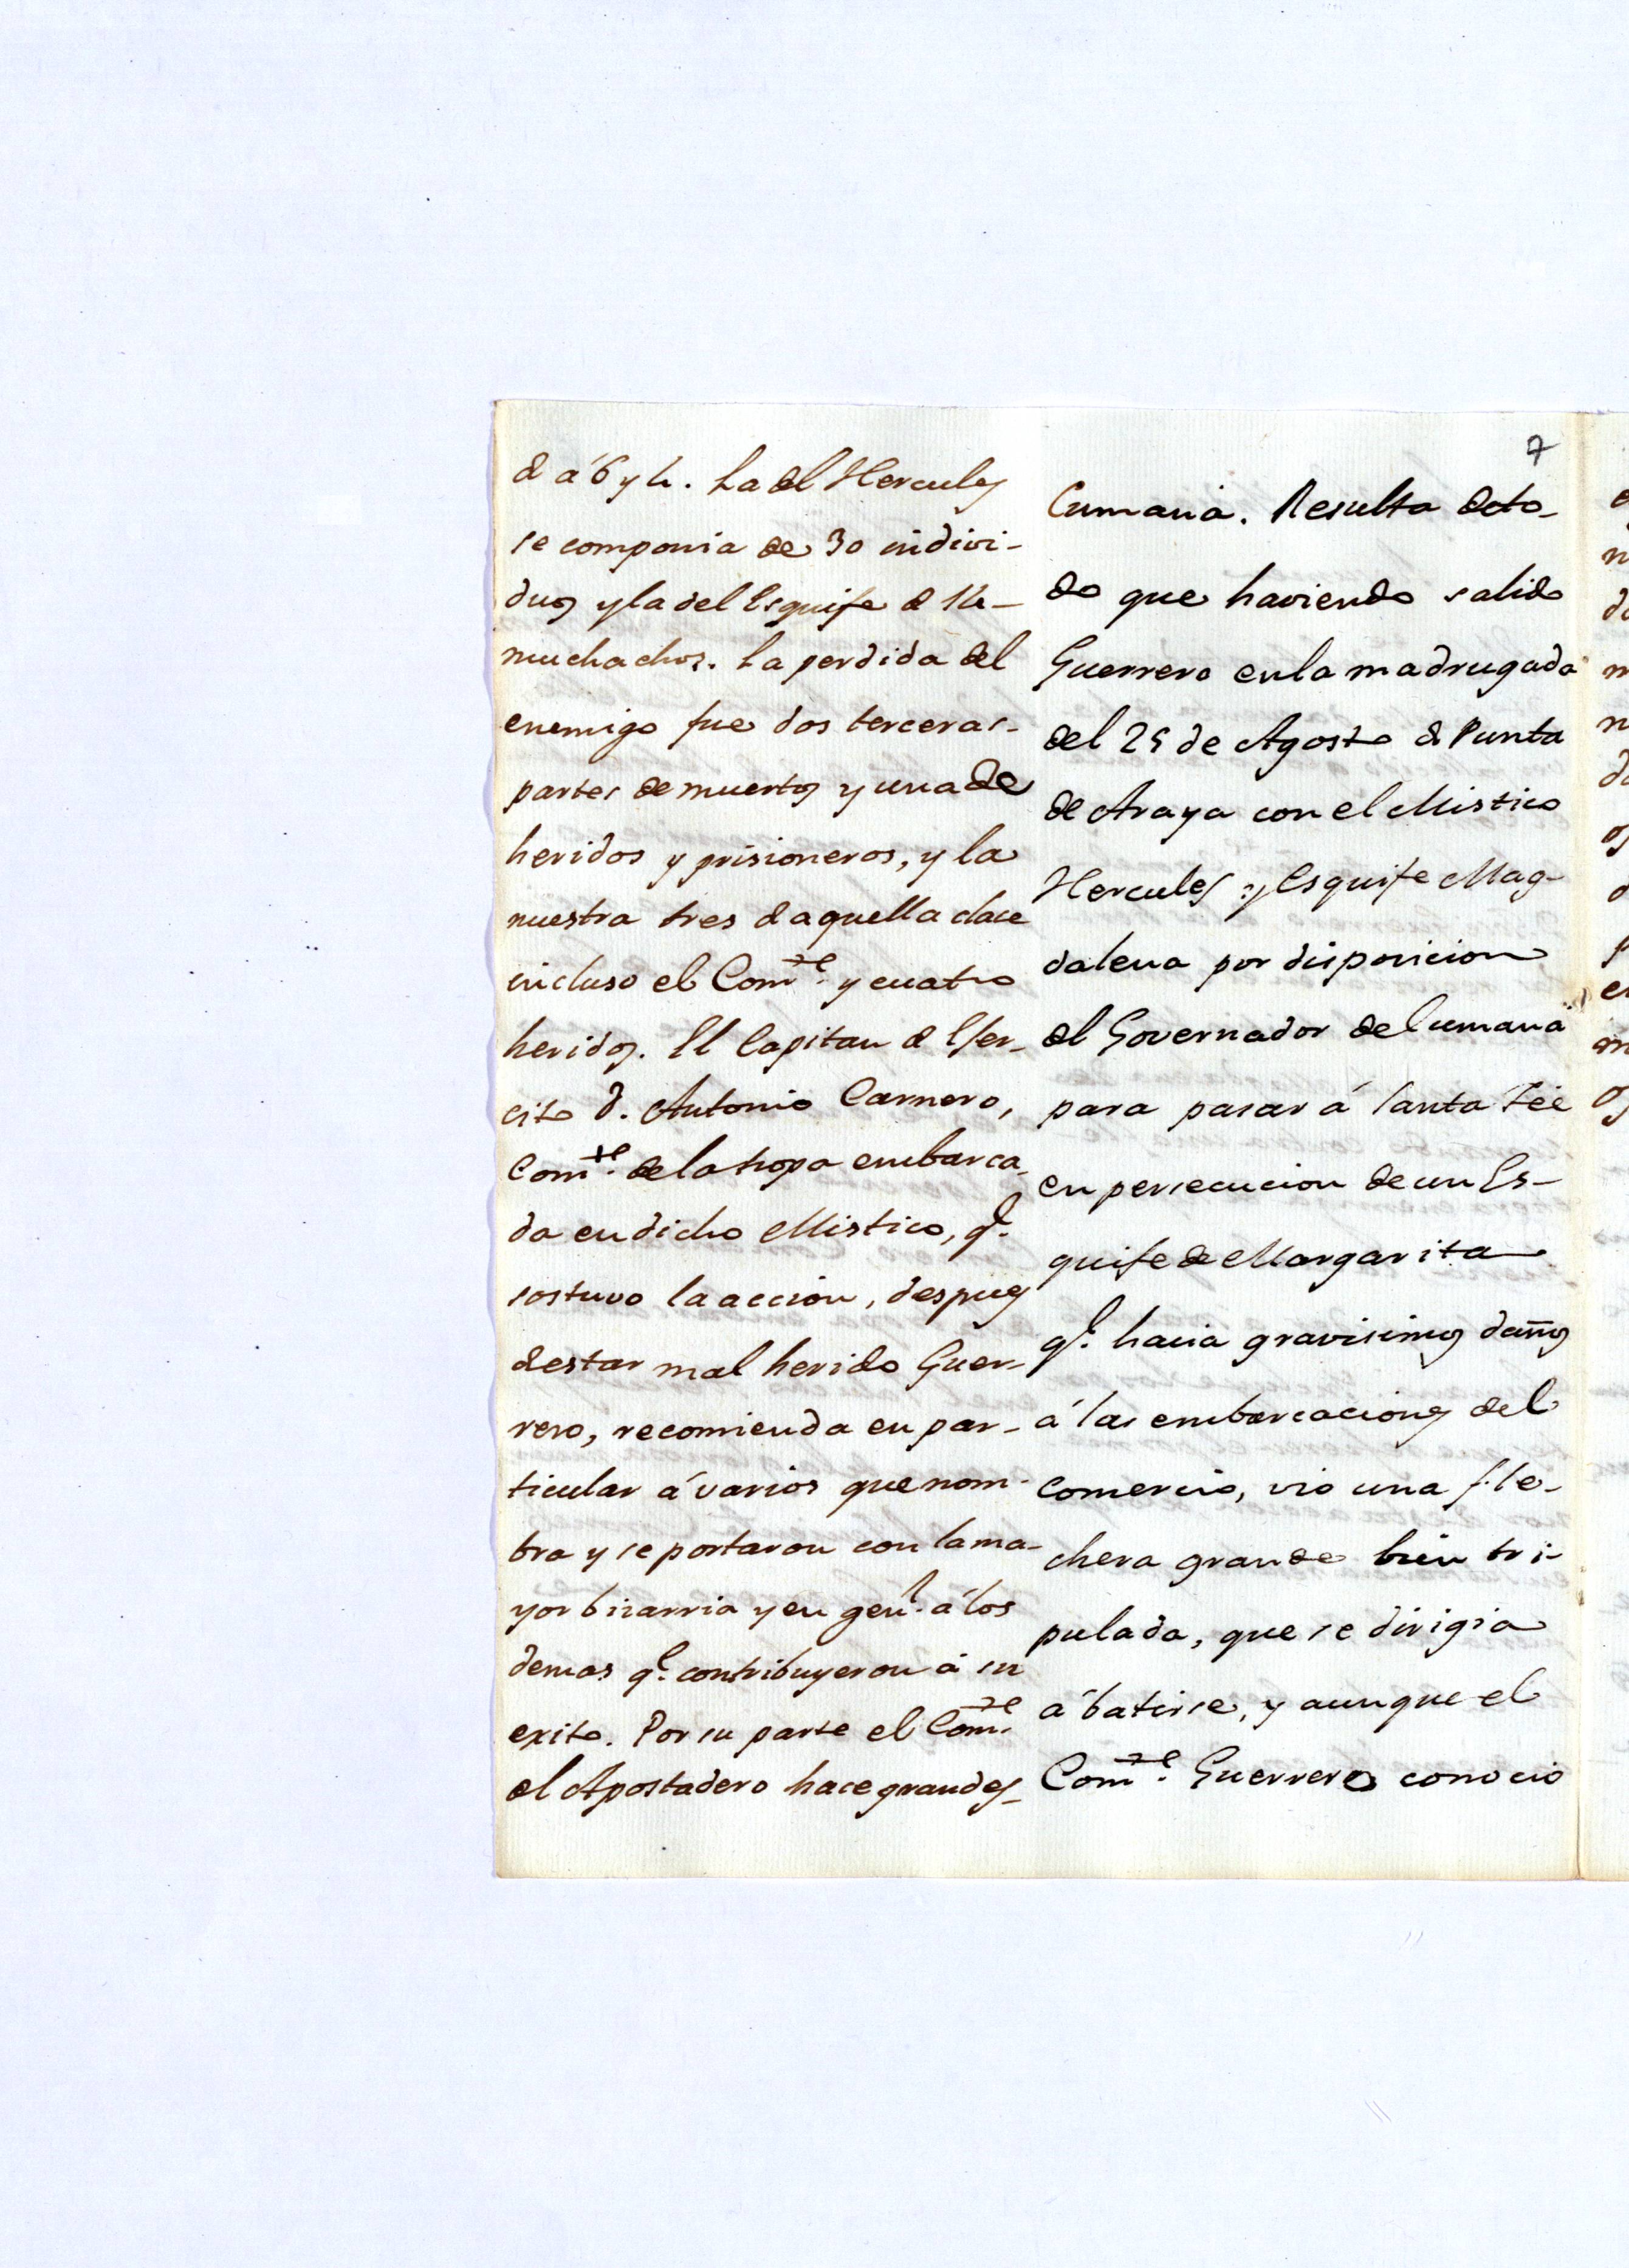 d á 6 y 4. La del Hercules
se componia de 30 indivi-
duos y la del Esquife d 14
muchachos. La perdida del
enemigo fue dos terceras
partes de muertos y una de
heridos y prisioneros, y la
nuestra tres d aquella clace
incluso el Comte. y cuatro
heridos. El Capitan d Eger-
cito D. Antonio Carnero,
Comte. de la tropa embarca-
da en dicho Mistico, q.e
sostuvo la accion, despues
d estar mal herido Guer-
rero, recomienda en par-
ticular á varios que nom-
bra y se portaron con la ma-
yor bizarria y en genl. á los
demas q.e contribuyeron á su
exito. Por su parte el Comte.
del Apostadero hace grandes
7
Cumaná. Resulta de to-
do que haviendo salido
Guerrero en la madrugada
del 25 de Agosto d Punta
de Araya con el Mistico
Hercules y Esquife Mag-
dalena por disposicion
del Governador de Cumaná
para pasar á Santa Fée
en persecucion de un Es-
quife de Margarita
q.e hacia gravisimos daños
á las embarcaciones del
comercio, vio una fle-
chera grande bien tri-
pulada, que se dirigia
á batirse, y aunque el
Comte. Guerrero conocio